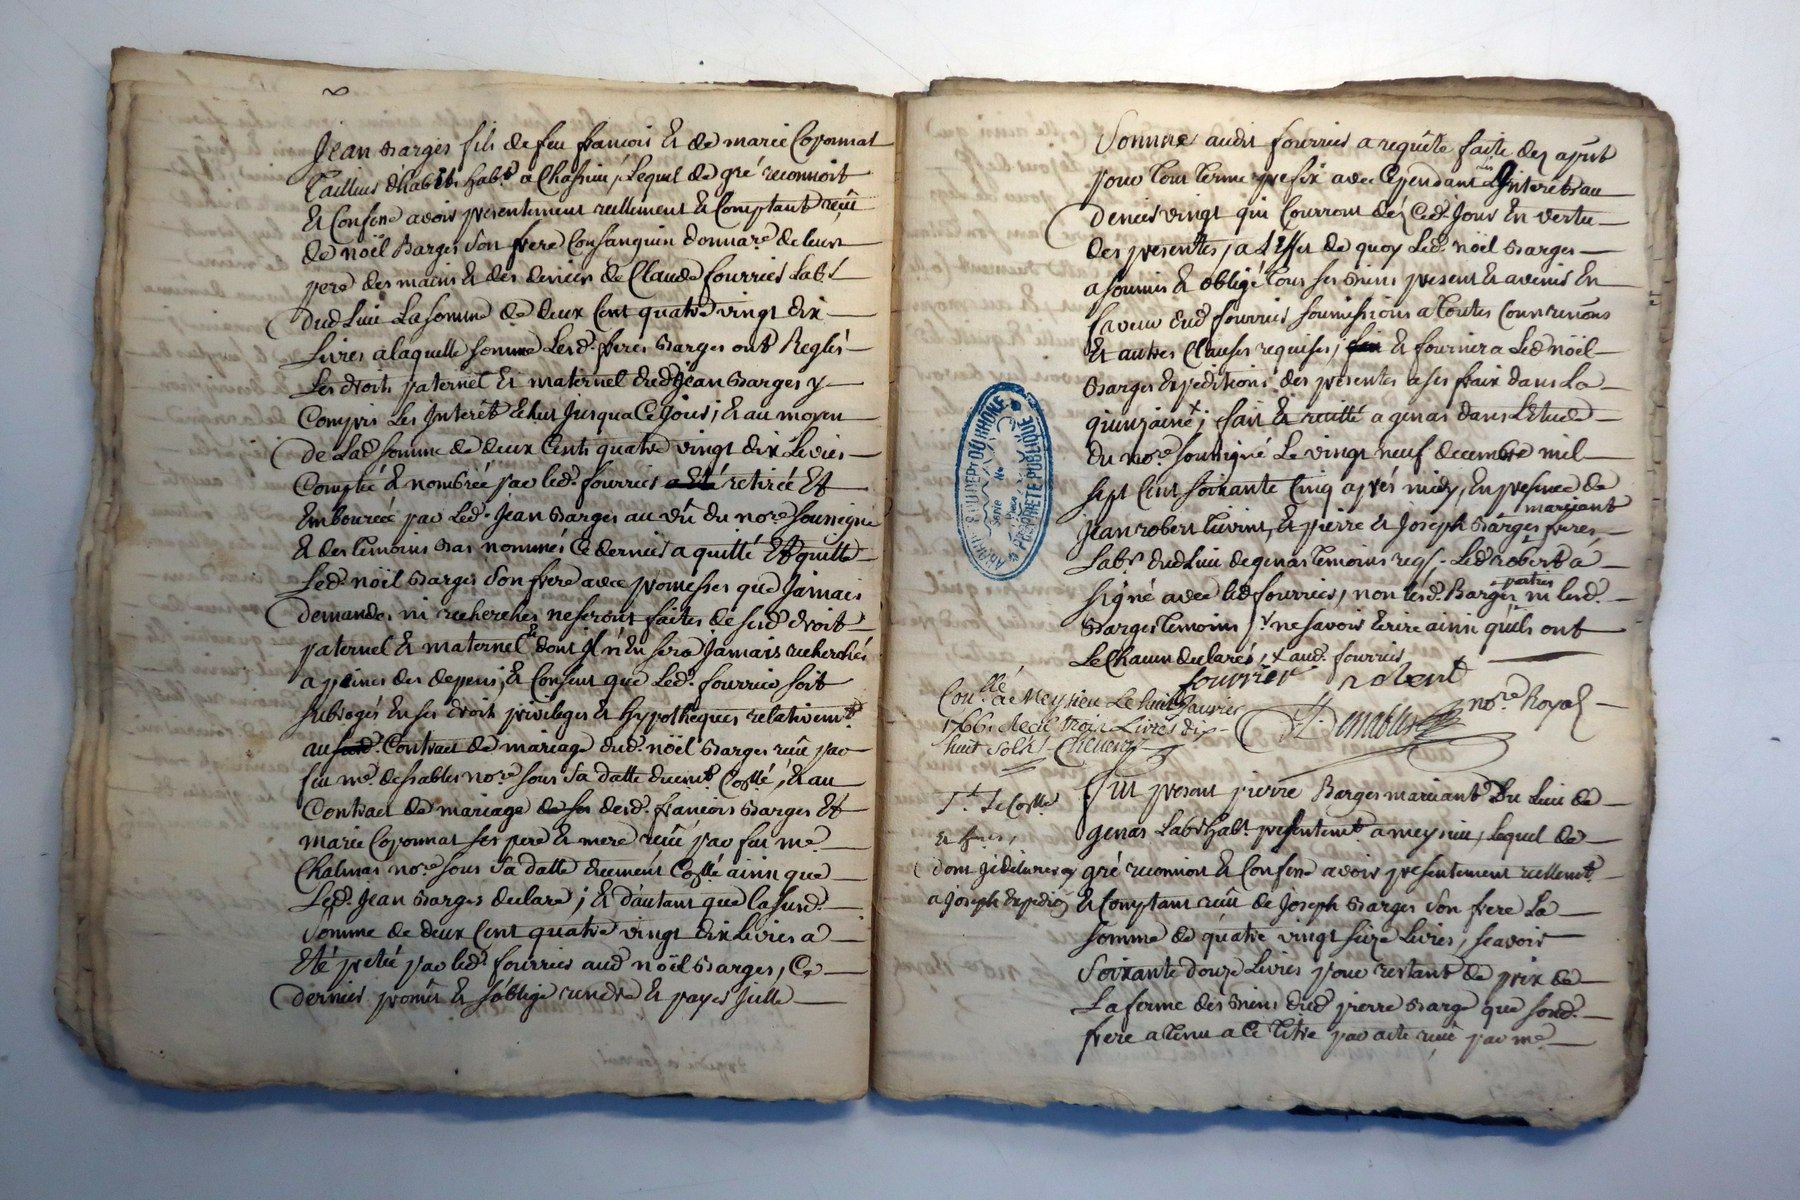 Jean Barges fils de feu francois et de marie Coponnat
Tailleur d'habits habt. a Chassieu, Lequel de gré reconnoit
Et Confesse avoir presentement reellement et Comptant reçu
de noël Barges Son frere Consanguin donnatre. de leur
pere des mains et des deniers de Claude fourrier Labr.
dud. Lieu La somme de deux Cent quatre vingt dix
Livres a laquelle somme Lesd. freres Barges ont Reglés
Les droits paternel et maternel dud. Jean Barges y
Compris Les Interêt Echus Jusqua Ce Jour; et au moyen
De Lad. somme de deux Cents quatre vingt dix Livres
Comptée et nombrée par led. fourrier retirée Et
Embourcée par Led. Jean Barges au vû du nore. soussigné
et des temoins Bas nommés Ce dernier a quitté Et quitte
Led. nöel Barges Son frere avec promesses que Jamais
demandes ni recherches ne seront faites de sesd. droit
paternel et maternel dont il n'En sera Jamais recherchés
a peines des depens, et Consent que Led. fourrier soit
subrogés En ses droits privileges et hypotheques relativemt.
au Contract de mariage dud. noël Barges reçu par
feu me. desSables nore. sous Sa datte duemt. Collé, et au
Contract de mariage desd. francois Barges Et
marie Coponnat Ses pere et mere reçu par feu me.
Chalmas nore. sous Sa datte duement Collé ainsi que
Led. Jean Barges declare; et d'autant que la susd.
Somme de deux Cent quatre vingt dix Livres a
Eté pretée par led. fourrier aud. noël Barges, Ce
Dernier promet et s'oblige rendre et payer Jcelle
Somme audit fourrier a requête faite des aprest
pour tout terme prefix avec Cependant Les Interets au
Denier vingt qui Courront dès Ced. Jour En vertu
des presentes, a L'Effet de quoy Led. nöel Barges
a soumis et obligé tous ses Biens present et avenir En
faveur dud. fourrier soumissions a toutes Cours
Et autres Clauses requises; et fournira Led. Nöel
Barges Expeditions des presentes a ses frais dans La
quinzaine x; fait et recitté a genas dans L'Etude
du nore. soussigné Le vingt neuf decembre mil
sept Cent soixante Cinq après midy, En presence de
marchant
Jean robert et pierre et Joseph Barges freres,
Labrs. dud. Lieu de genas temoins reqs. Led. robert a
signé avec led. fourrier, non lesd. Barges parties ni lesd.
Barges temoins pr. ne savoir Ecrire ainsi qu'ils ont
Le Chacun declarés, x aud. fourrier
fourrier robert
nore. Royal
Conllé. a Meysieu Le huit Janvier
1766. Reçu trois Livres dix
huit sols
Fut present pierre Barges marchant Du Lieu de
genas Labr. habt. presentemt. a meysieu, lequel de
gré reconnoit et Confesse avoir presentement reellemt.
et Comptant reçu de Joseph Barges Son frere La
Somme de quatre vingt seize Livres, scavoir
Soixante douze Livres pour restant de prix de
La ferme des Biens dud. pierre Barges que sond.
frere a tenu a Ce titre par acte reçu par me.
a Joseph Expedié
PROPRIETE PUBLIQUE